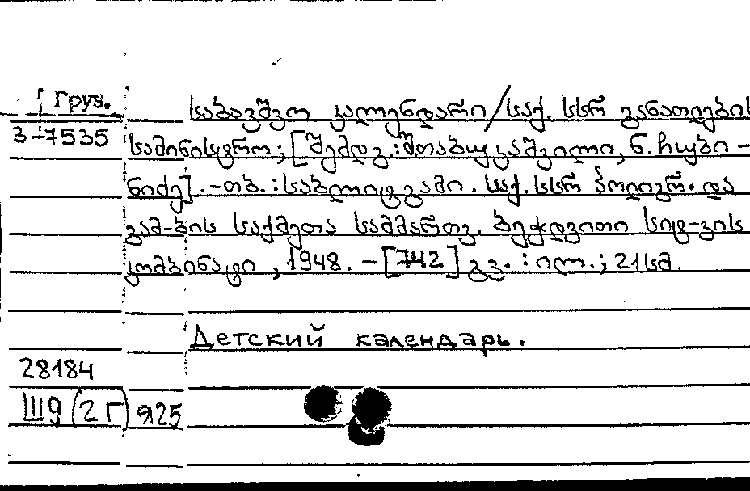 Груз.
საბავშვო კალენდარი / საქ. სსრ განათლების
3-7535
სამინისტრო; [შემდგ.: შთაბუკაშვილი, ნ. ჩუბი-
ნიძე]. - თბ.: საბლიტგამი. საქ. სსრ პოლიგრ. და
გამ-ბის საქმეთა სამმართვ. ბეჭდვითი სიტ-ვის
კომბინატი, 1948. - [742] გვ. : ილ. ; 21 სმ.
Детский календарь.
28184
Ш9(2Г) я25